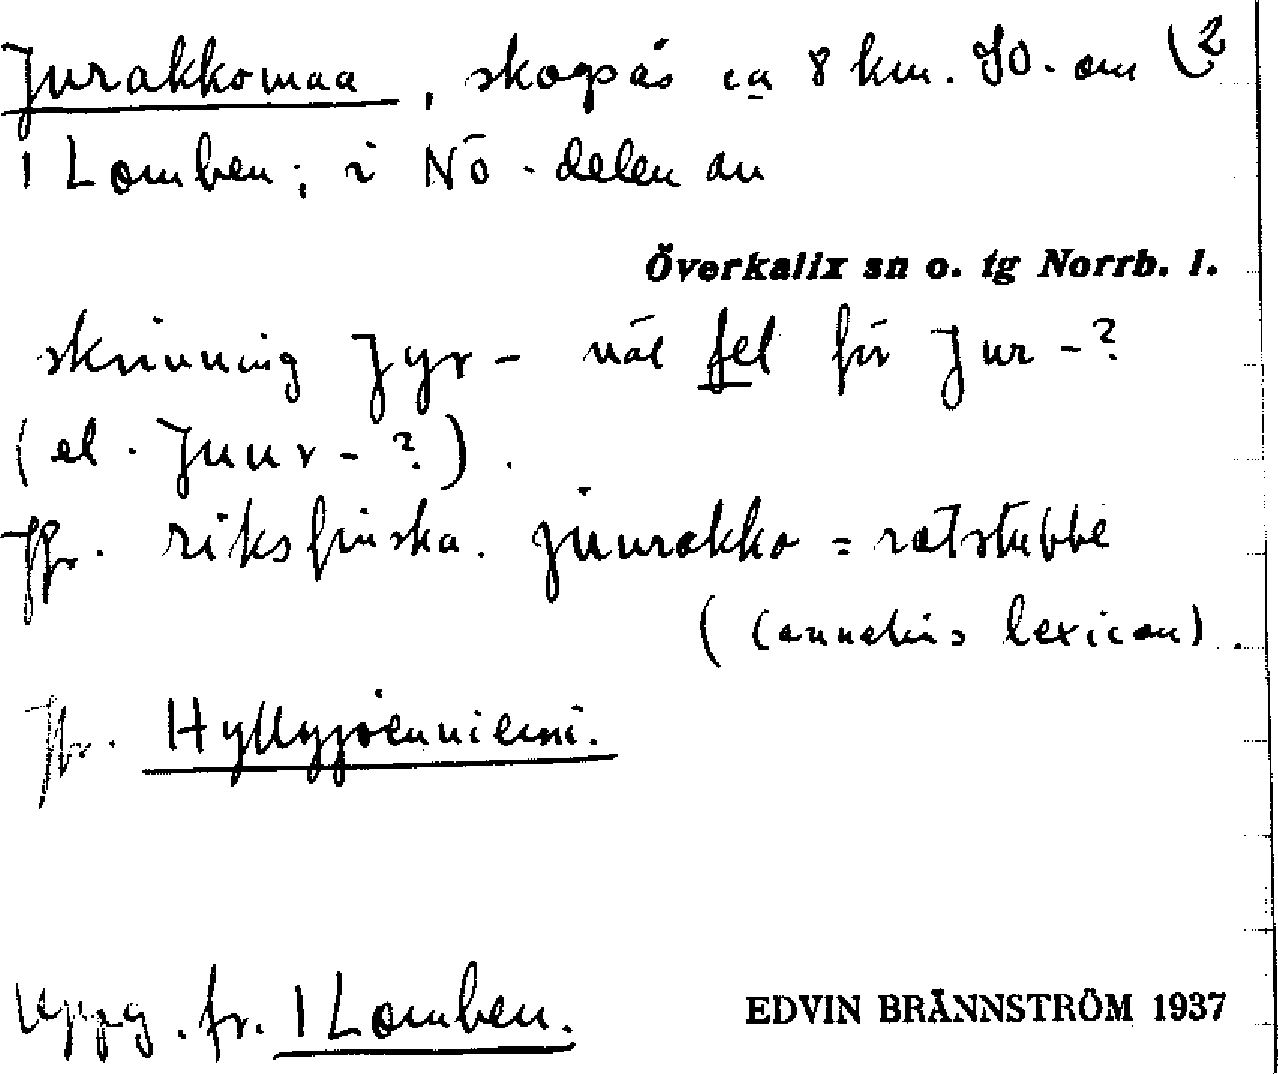 Jurakkomaa, skogsås ca 8 km. SO. om (2
1 Lomben; i NÖ-delen av
Överkalix sn o. tg Norrb. l.
skrivning Jyr- väl fel för Jur-?
(el. Juur-?).
Jfr. riksfinska. juurakko = rotstubbe
(Cannelins lexicon).
Jfr. Hyllyjoenniemi.
Uppg. fr. 1 Lomben.
EDVIN BRÄNNSTRÖM 1937